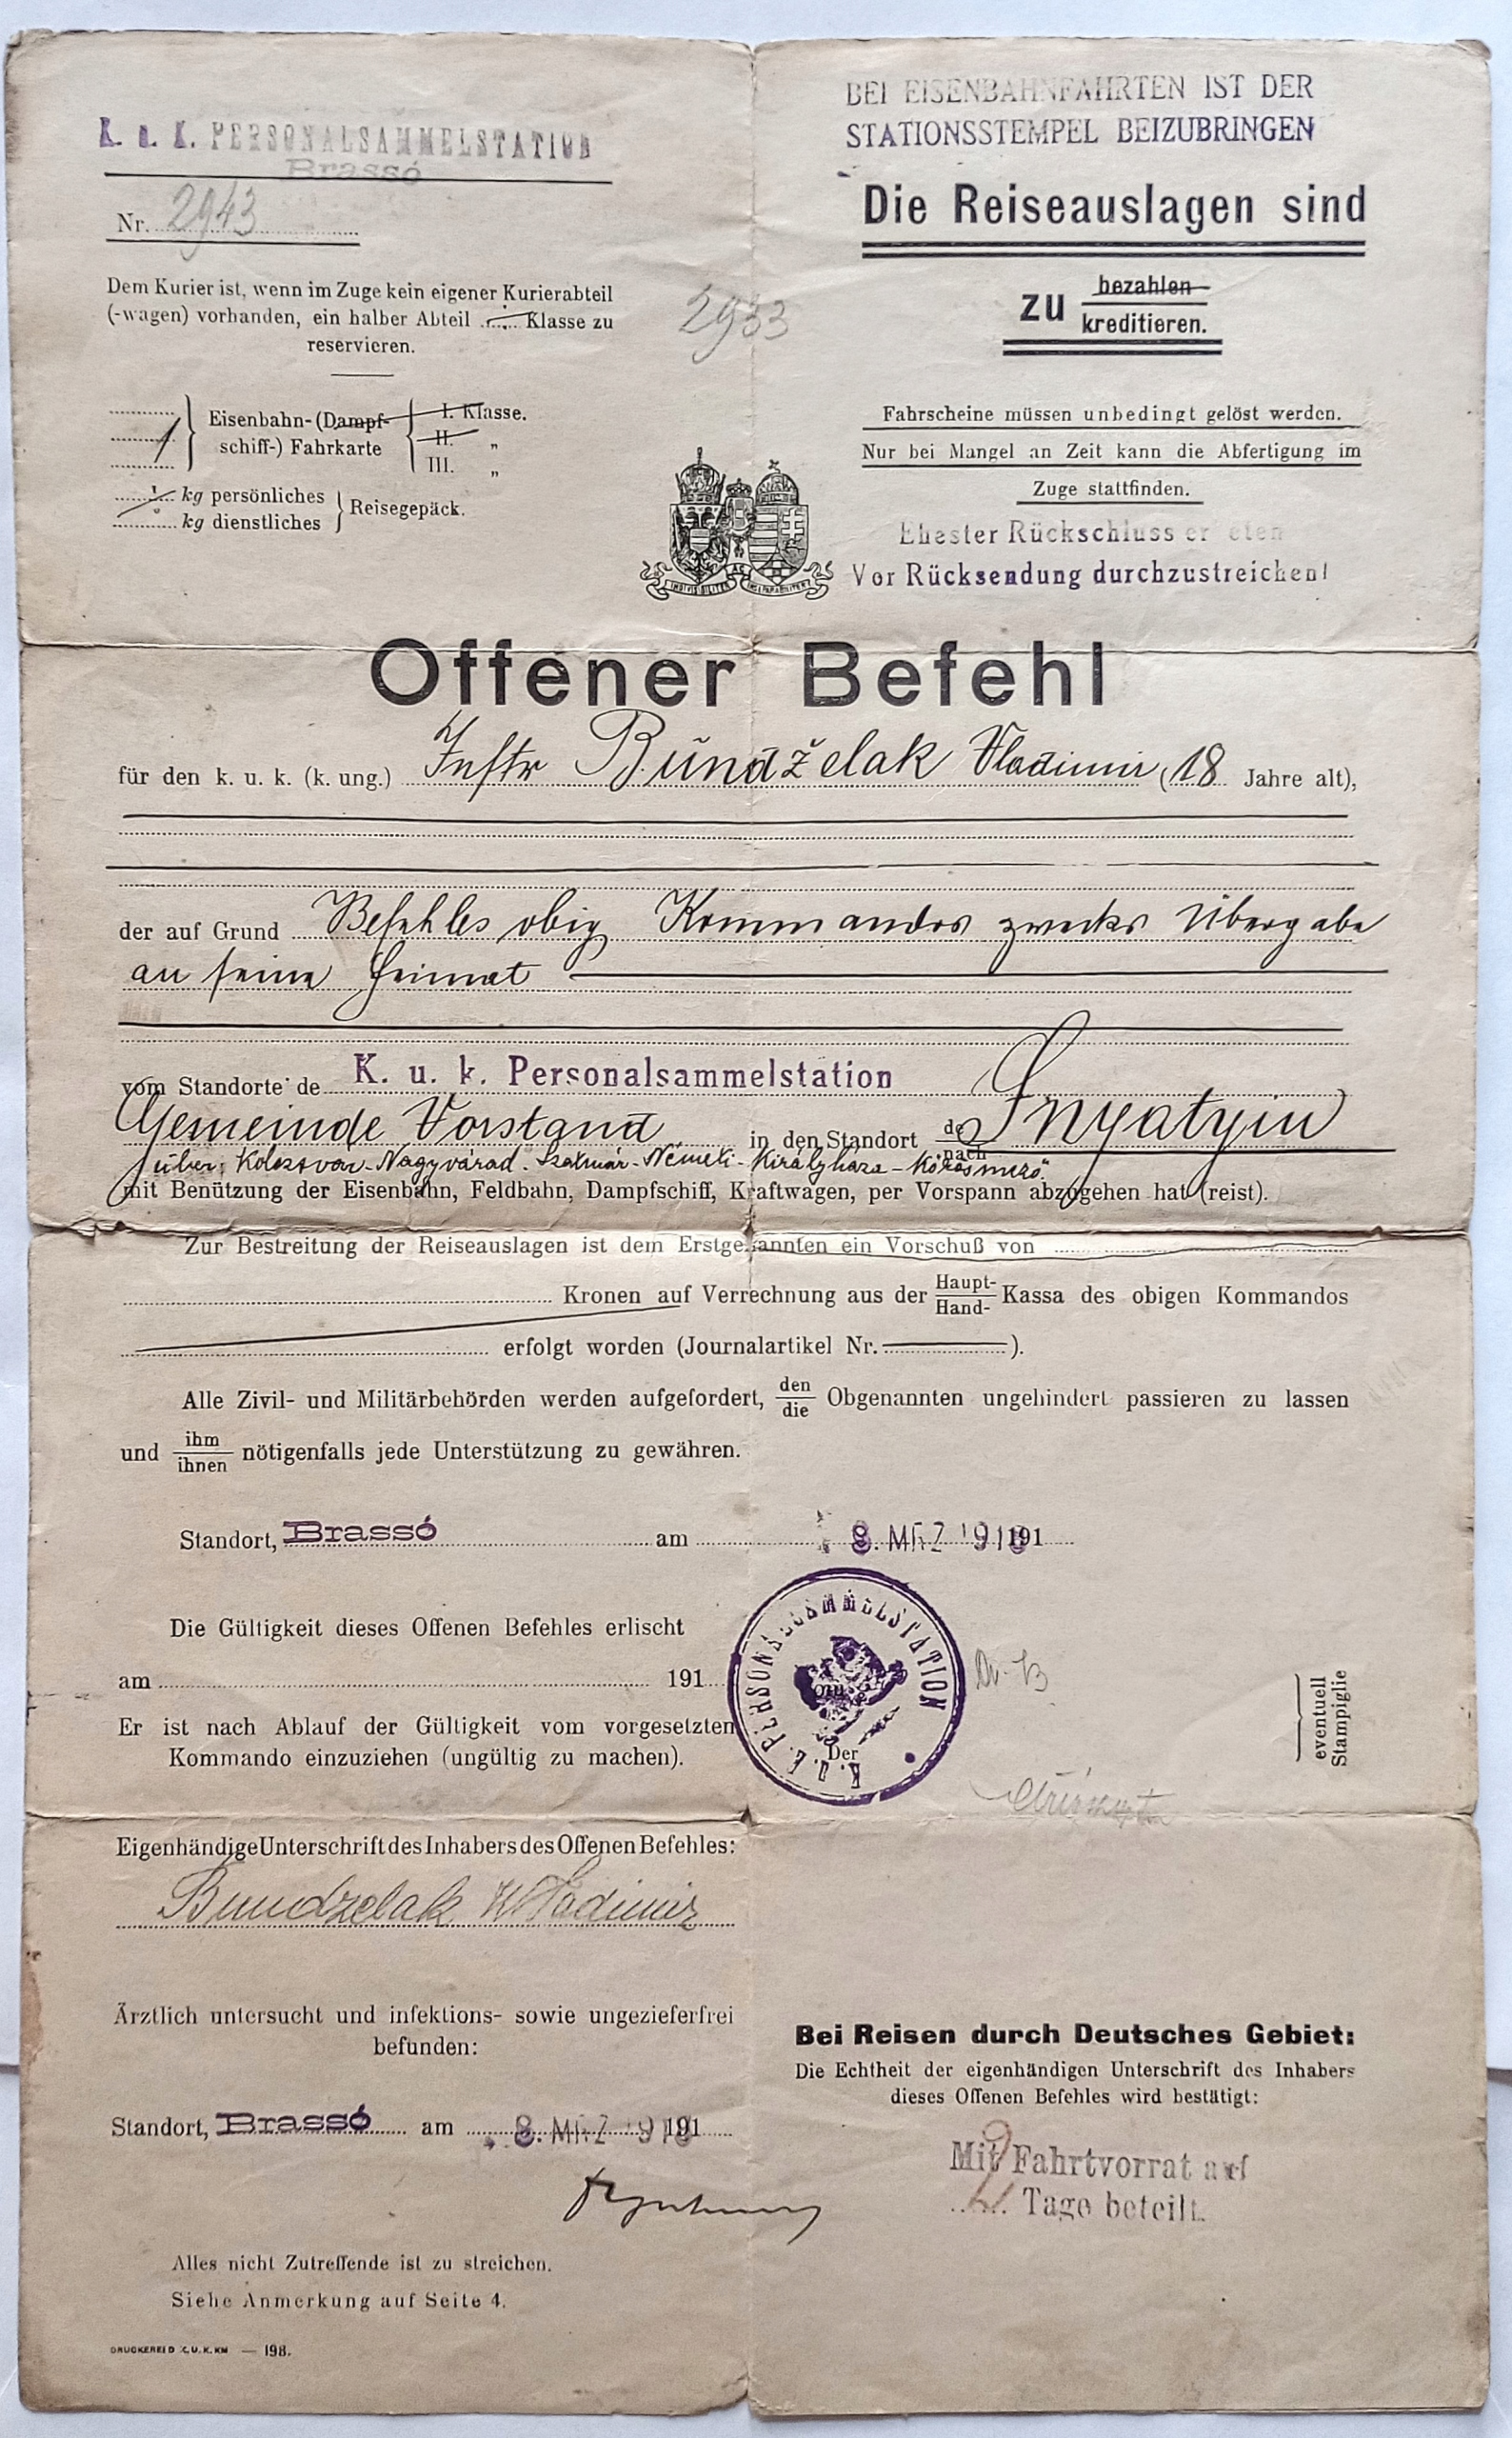 K. u. K. PERSONALSAMMELSTATION
Brassó
Nr. 2943
Dem Kurier ist, wenn im Zuge kein eigener Kurierabteil
(-wagen) vorhanden, ein halber Abteil ........ Klasse zu
reservieren.
1 Eisenbahn-(Dampf-
schiff-) Fahrkarte
I. Klasse.
II. „
III. „
kg persönliches
kg dienstliches
Reisegepäck.
BEI EISENBAHNFAHRTEN IST DER
STATIONSSTEMPEL BEIZUBRINGEN
Die Reiseauslagen sind
zu bezahlen
kreditieren.
2933
Fahrscheine müssen unbedingt gelöst werden.
Nur bei Mangel an Zeit kann die Abfertigung im
Zuge stattfinden.
Ehester Rückschluss er eten
Vor Rücksendung durchzustreichen!
INDIVISIBILITER AC INSEPARABILITER
Offener Befehl
für den k. u. k. (k. ung.) Inftr Bundželak Vladimir (18 Jahre alt),
der auf Grund Befehles obig Kommandos zwecks Übergabe
an seine Heimat
vom Standorte de K. u. k. Personalsammelstation
Gemeinde Vorstand in den Standort de nach Snyatyin
über: Kolozsvár-Nagyvárad-Szatmár-Németi-Királyháza-Körösmezö
mit Benützung der Eisenbahn, Feldbahn, Dampfschiff, Kraftwagen, per Vorspann abzugehen hat (reist).
Zur Bestreitung der Reiseauslagen ist dem Erstgenannten ein Vorschuß von
Kronen auf Verrechnung aus der Haupt- Hand- Kassa des obigen Kommandos
erfolgt worden (Journalartikel Nr. ).
Alle Zivil- und Militärbehörden werden aufgefordert, den die Obgenannten ungehindert passieren zu lassen
und ihm ihnen nötigenfalls jede Unterstützung zu gewähren.
Standort, Brassó am 8. MRZ 1918 191
Die Gültigkeit dieses Offenen Befehles erlischt
am 191
Er ist nach Ablauf der Gültigkeit vom vorgesetzten
Kommando einzuziehen (ungültig zu machen).
K. u. K. PERSONALSAMMELSTATION
Der
eventuell
Stampiglie
Eigenhändige Unterschrift des Inhabers des Offenen Befehles:
Bundzelak Wladimir
Ärztlich untersucht und infektions- sowie ungezieferfrei
befunden:
Standort, Brassó am 8. MRZ 1918 191
Alles nicht Zutreffende ist zu streichen.
Siehe Anmerkung auf Seite 4.
DRUCKEREI D K. U. K. KM — 198.
Bei Reisen durch Deutsches Gebiet:
Die Echtheit der eigenhändigen Unterschrift des Inhabers
dieses Offenen Befehles wird bestätigt:
Mit Fahrtvorrat auf
Tage beteilt.